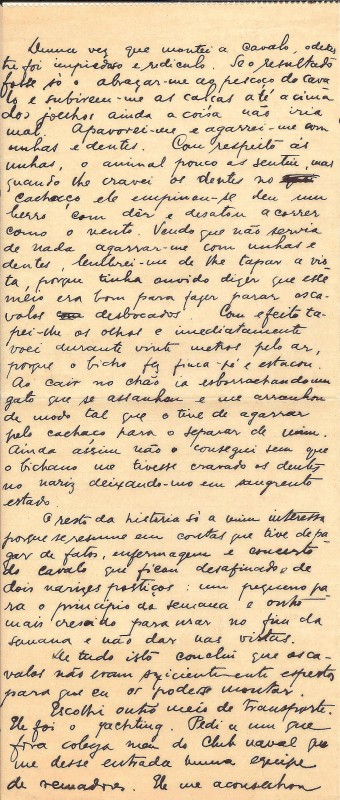 Duma vez que montei a cavalo, o desas
tre foi impiedoso e ridiculo. Se o resultado
fosse só o abraçar-me ao pescoço do cava
lo e subirem-me as calças até acima
dos joelhos ainda a coisa não iria
mal. Apavorei-me e agarrei-me com
unhas e dentes. Com respeito às
unhas, o animal pouco as sentiu, mas
quando lhe cravei os dentes no
cachaço ele empinou-se deu um
berro com dôr e desatou a correr
como o vento. Vendo que não servia
de nada agarrar-me com unhas e
dentes, lembrei-me de lhe tapar a vis
ta, porque tinha ouvido dizer que este
meio era bom para fazer parar os ca-
valos desbocados. Com efeito ta-
pei-lhe os olhos e imediatamente
voei durante vinte metros pelo ar,
porque o bicho fez finca-pé e estacou.
Ao cair no chão ia esborrachando um
gato que se assanhou e me arranhou
de modo tal que o tive de agarrar
pelo cachaço para o separar de mim.
Ainda assim não o consegui sem que
o bichano me tivesse cravado os dentes
no nariz deixando-mo em sangrento
estado.
O resto da historia só a mim interessa
porque se resume em contas que tive de pa
gar de fatos, enfermagem e concerto
do cavalo que ficou desafinado, de
dois narizes postiços: um pequeno pa
ra o principio da semana e outro
mais crescido para usar no fim da
semana e não dar nas vistas.
De tudo isto conclui que os ca-
valos não eram suficientemente espertos
para que eu os podesse montar.
Escolhi outro meio de transporte.
Ele foi o yachting. Pedi a um que
fora colega meu do Club naval que
me desse entrada numa equipe
de remadores. Ele me aconselhou